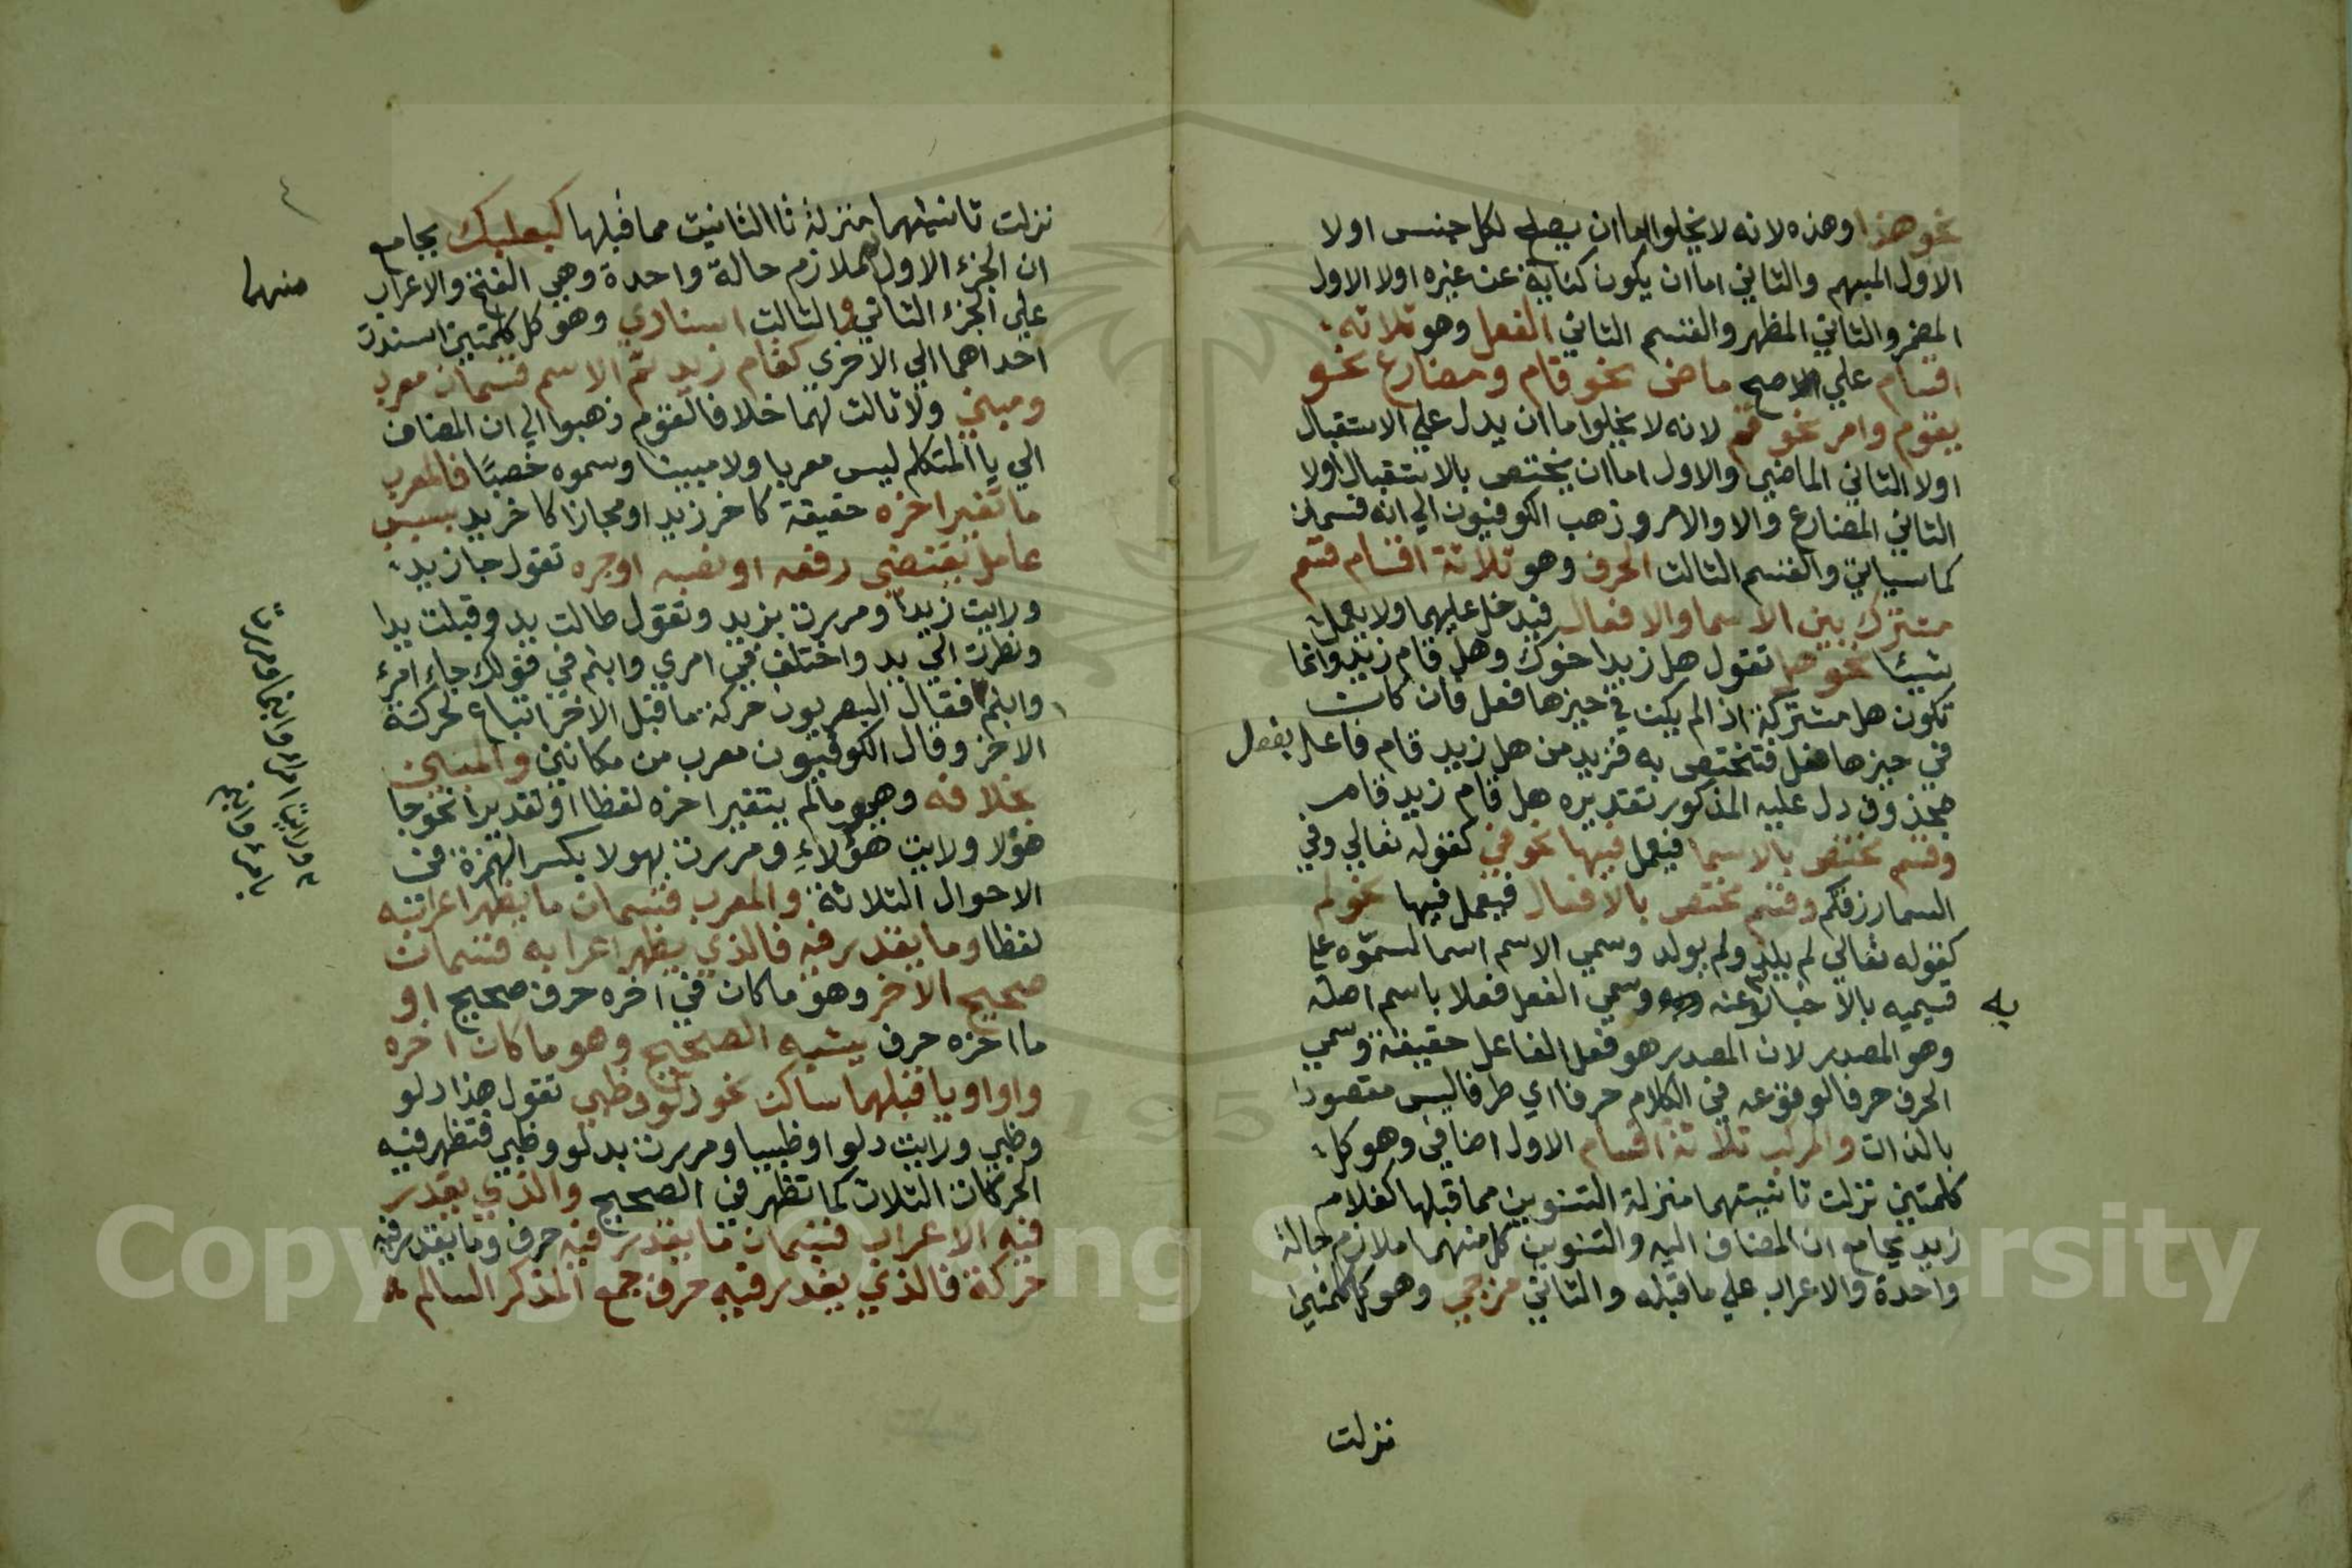 نحو هذا وهذه لانه لا يخلوا اما ان يصلح لكل جنس اولا
الاول المبهم والثاني اما ان يكون كناية عن غيره اولا الاول
المضمر والثاني المظهر والقسم الثاني الفعل وهو ثلاثه
اقسام علي الاصح ماضى نحو قام ومضارع نحو
يقوم وامر نحو قم لانه لا يخلوا اما ان يدل علي الاستقبال
اولا الثاني الماضي والاول اما ان يختص بالاستقبال اولا
الثاني المضارع والاول الامر وذهب الكوفيون الي انه قسمان
كما سياتي والقسم الثالث الحرف وهو ثلاثة اقسام قسم
مشترك بين الاسما والافعال فيدخل عليهما ولا يعمل
شيئا نحو هل تقول هل زيد اخوك وهل قام زيد وانما
تكون هل مشتركة اذا لم يكن في حيزها فعل فان كان
في حيزها فعل فتختص به فزيد من هل زيد قام فاعل بفعل
محذوف دل عليه المذكور تقديره هل قام زيد قام
وقسم مختص بالاسما فيعمل فيها نحو في كقوله تعالي وفي
السما رزقكم وقسم مختص بالافعال فيعمل فيها نحو لم
كقوله تعالي لم يلد ولم يولد وسمي الاسم اسما لسموه علي
قسيميه بالاخبار عنه وسمي الفعل فعلا باسم اصله
به
وهو المصدر لان المصدر هو فعل الفاعل حقيقة وسمي
الحرف حرفا لوقوعه في الكلام حرفا اي طرفا ليس مقصودا
بالذات والمركب ثلاثة اقسام الاول اضافي وهو كل
كلمتين نزلت ثانيتهما منزلة التنوين مما قبلها كغلام
زيد بجامع ان المضاف اليه والتنوين كل منهما ملازم حالة
واحدة والاعراب علي ما قبله والثاني مزجي وهو كل كلمتين
نزلت
٤
نزلت ثانيتهما منزلة تا التانيث مما قبلها كبعلبك بجامع
ان الجزء الاول ملازم حالة واحدة وهي الفتح والاعراب
منهما
علي الجزء الثاني والثالث اسنادي وهو كل كلمتين اسندت
احداهما الي الاخري كقام زيد ثم الاسم قسمان معرب
ومبني ولا ثالث لهما خلافا لقوم ذهبوا الي ان المضاف
الي يا المتكلم ليس معربا ولا مبينا وسموه خصيًا فالمعرب
ما تغير اخره حقيقة كاخر زيد او مجازا كاخر يد بسبب
عامل يقتضي رفعه او نصبه او جره تقول جا زيد
ورايت زيدا ومررت بزيد وتقول طالت يد وقبلت يدا
ونظرت الي يد واختلف في امري وابنم في قولك جاء امرء
وابنم فقال البصريون حركة ما قبل الاخر اتباع لحركة
الاخر وقال الكوفيون معرب من مكانين والمبني
بخلافه وهو مالم يتغير اخره لفظا او تقديرا نحو جا
هؤلا ورايت هؤلاءِ ومررت بهولا بكسر الهمزة في
الاحوال الثلاثة والمعرب قسمان ما يظهر اعرابه
لفظا وما يقدر فيه فالذي يظهر اعرابه قسمان
صحيح الاخر وهو ما كان في اخره حرف صحيح او
ما اخره حرف يشبه الصحيح وهو ما كان اخره
واوا او يا قبلهما ساكن نحو دلو وظبي تقول هذا دلو
وظبي ورايت دلوا وظبيا ومررت بدلو وظبي فتظهر فيه
الحركات الثلاث كما تظهر في الصحيح والذي يقدر
فيه الاعراب قسمان ما يقدر فيه حرف وما يقدر فيه
حركة فالذي يقدر فيه حرف جمع المذكر السالم
Copyright © King Saud University
195